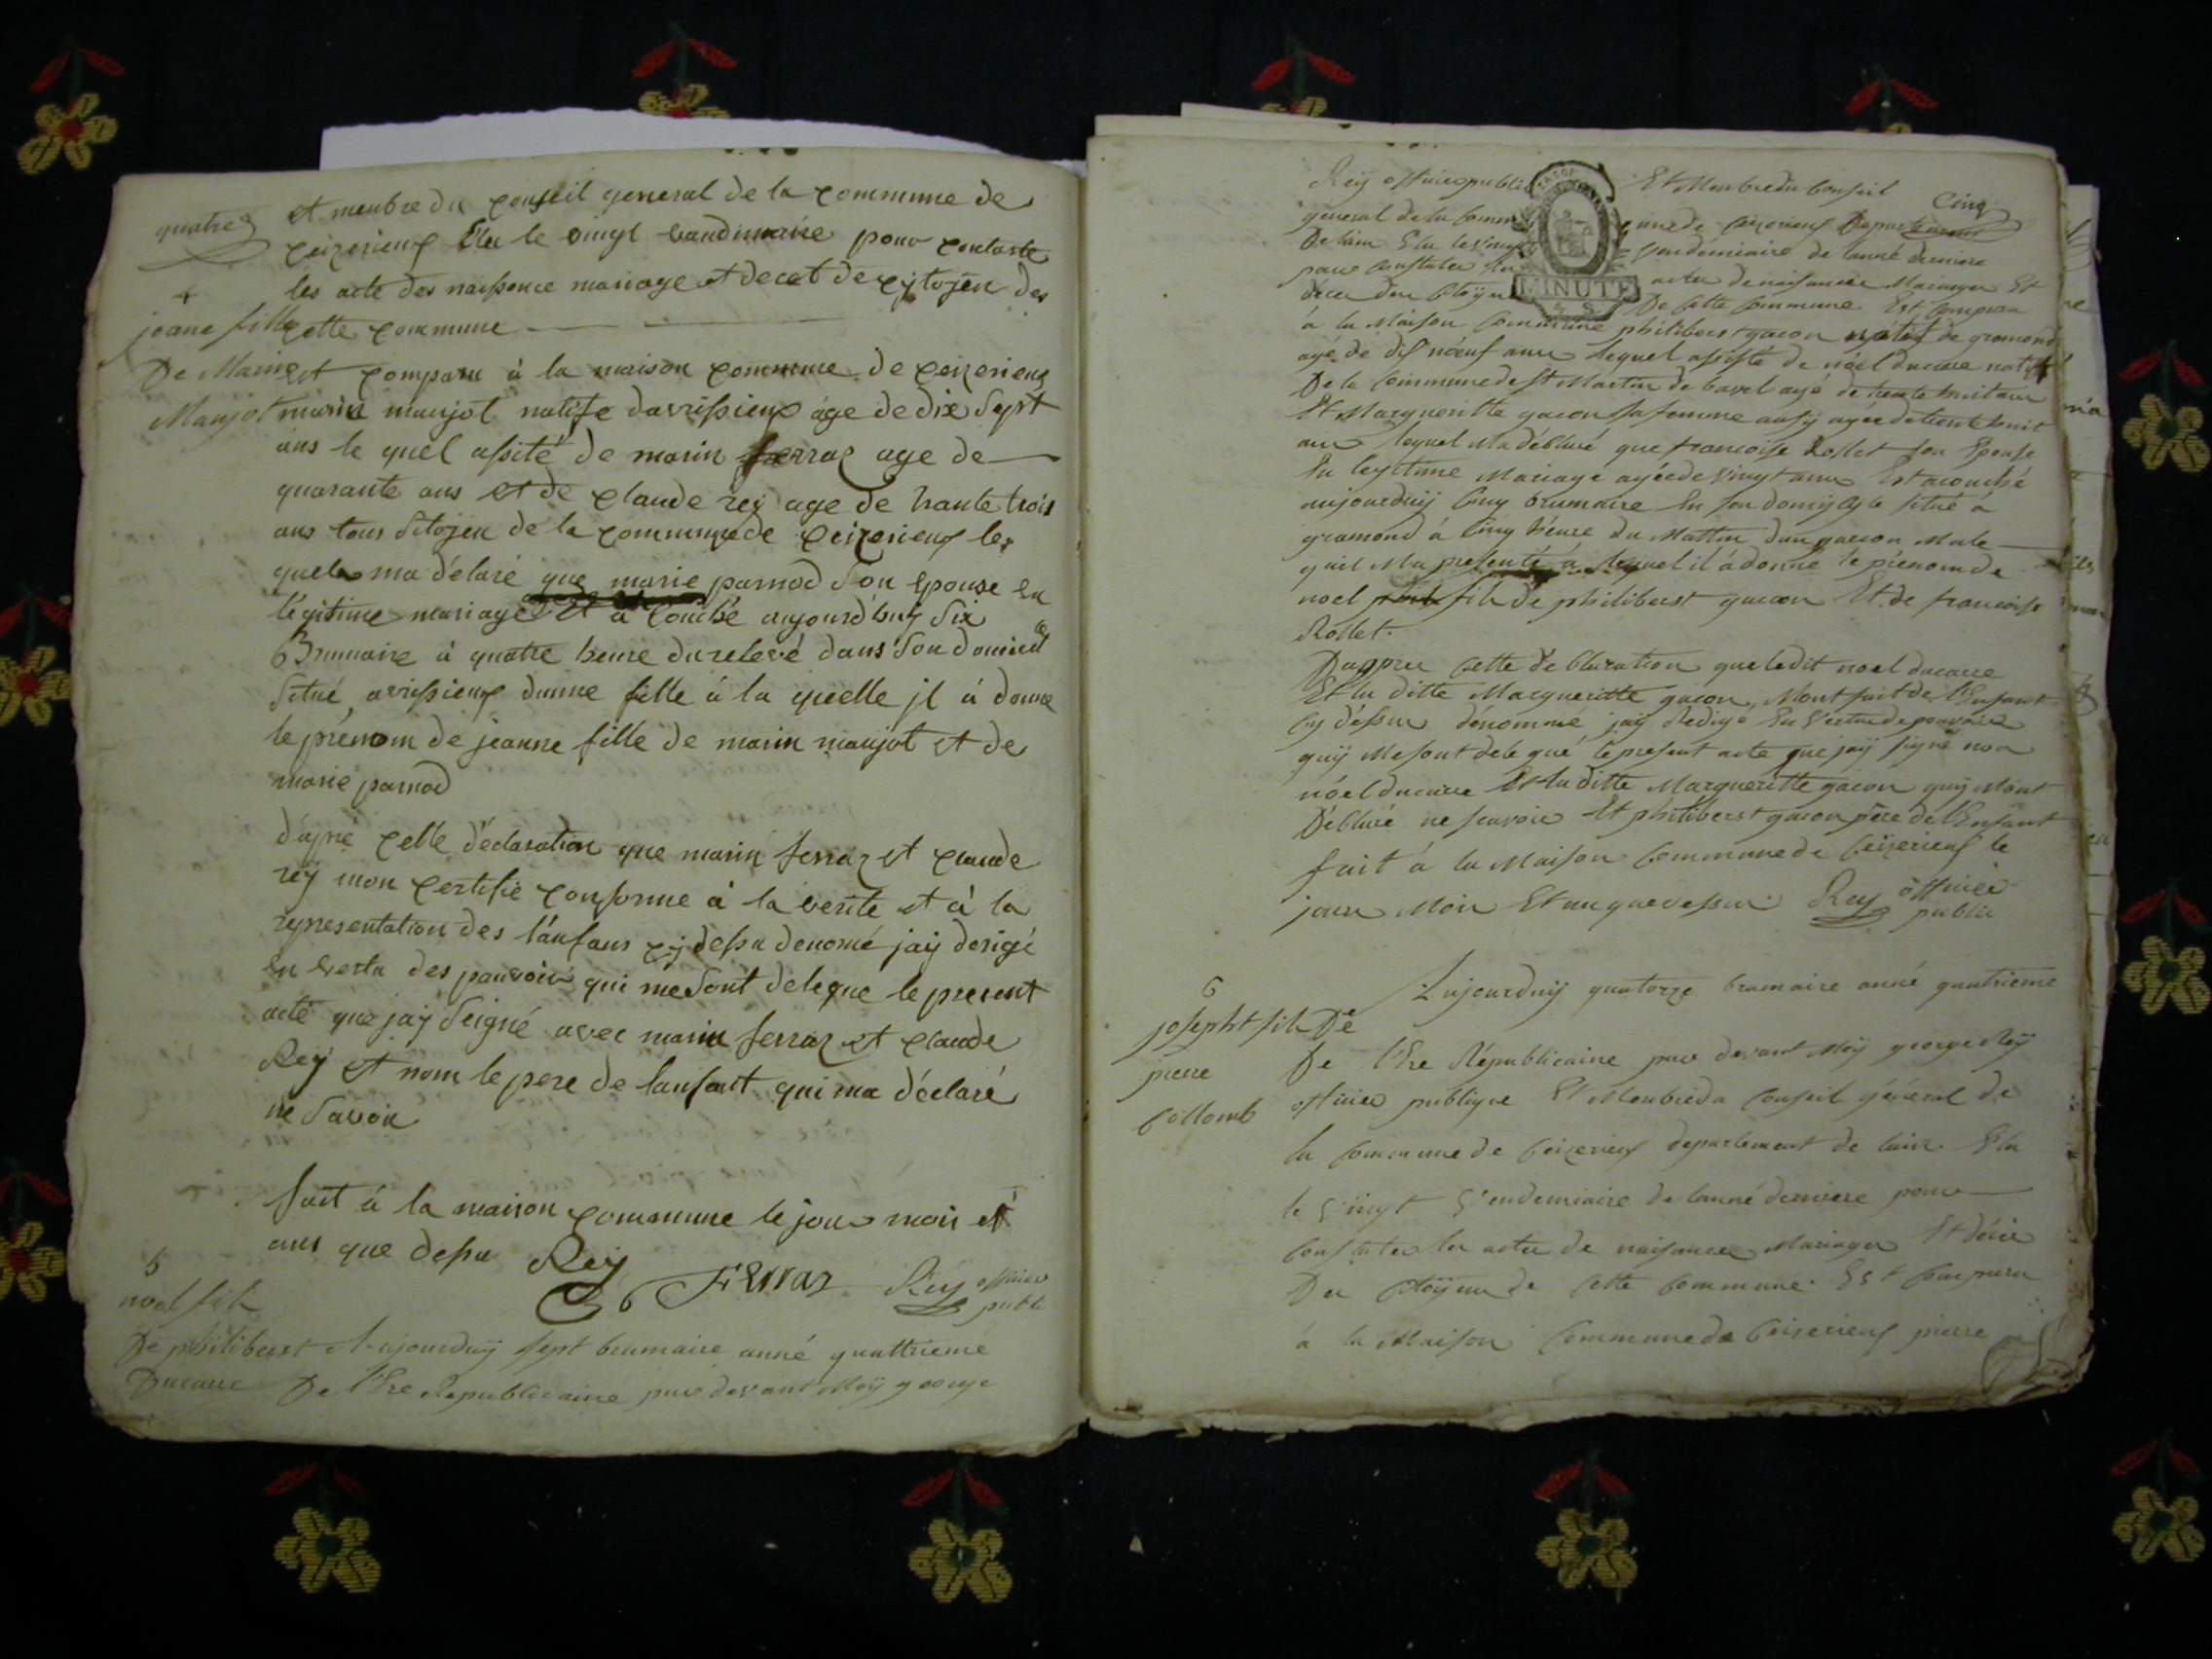 quatre
et membre du conseil general de la commune de
ceizerieux Elu le vingt vandimaire pour contaste
les acte des naissence mariage et decet de cytojen des
4
jeane fille cette commune
De Marin est comparu à la maison commune de ceizerieux
Manjot marin manjot natife davrissieux age de dix sept
ans le quel assité de marin ferraz age de
quarante ans et de claude rey age de trante trois
ans tous sitojen de la commune de ceizerieux les
quels ma délaré que marie parnod son epouse en
légitime mariage et a couché aujourd'huy six
Brumaire à quatre heure du relevé dans son domicil
situé avrissieux dunne fille à la quelle jl à donne
le prénom de jeanne fille de marin manjot et de
marie parnod
d'apré cette déclaration que marin ferraz et claude
rey mon certifié conforme à la verite et à la
representation des l'anfans cy dessu denomé jaÿ derigé
en vertu des pouvoir qui me sont deleque le present
acte que jay seigné avec marin ferraz et claude
Rey et nom le pere de lanfant qui ma déclaré
ne savoir
fait à la maison commune le jour mois et
ans que dessu Rey
Ferraz Rey officier
public
5
noel fils
De philibert Aujourduÿ sept brumaire anné quattrieme
Ducarre De l'Ere Republicaine par devant Moÿ george
Cinq
Reÿ officier public Et Membre du Conseil
general de la Commune de Ceizerieux Departement
De lain Elu le vingt vendémiaire de lanné derniere
pour Constater les actes de naissances Mariages Et
deces des Citoÿens De Cette Commune Est Comparu
MINUTE
à la Maison Commune philibert gacon natif de gramond
agé de dis nœuf ans lequel assisté de nöel ducarre natif
De la Commune de St Martin de bavel agé de trente huit ans
Et Margueritte gacon sa femme ausÿ agée de trente huit
ans lequel Ma débluré que francoise Rosset son Epouse
En legitime Mariage agée de vingt ans Est acouché
aujourduÿ Cinq brumaire En son domÿcile situé à
gramond à Cinq heure du Mattin dun garcon Male
quil Ma presenté à lequel il à donné le prénom de
noel fils de philibert gacon Et de francoise
Rosset.
Dappres Cette declaration que ledit noel ducarre
Et la ditte Margueritte gacon, Mont fait de l'Enfant
Cÿ déssus dénomme jaÿ Redigé En Vertu de pouvoirs
quÿ Me sont delegué le present acte que jaÿ signé non
nöel ducarre Et la ditte Margueritte gacon quÿ Mont
Débluré ne scavoir Et philibert gacon père de l'Enfant
fait à la Maison Commune de Ceizerieux le
jour Mois Et an que dessus Rey officier
public
Aujourduÿ quatorze brumaire anné quatrieme
6
josepht fils De
pierre
Collomb
De l'Ere Républicaine par devant Moÿ george Reÿ
officier publique Et Membre du Conseil général de
la Commune de Ceizerieux departement de lain Elu
le Vingt Vendemiaire de lanné derniere pour
Constater les actes de naissances Mariages Et décès
Des Citoÿens de Cette Commune Est Comparu
à la Maison Commune de Ceizerieux pierre